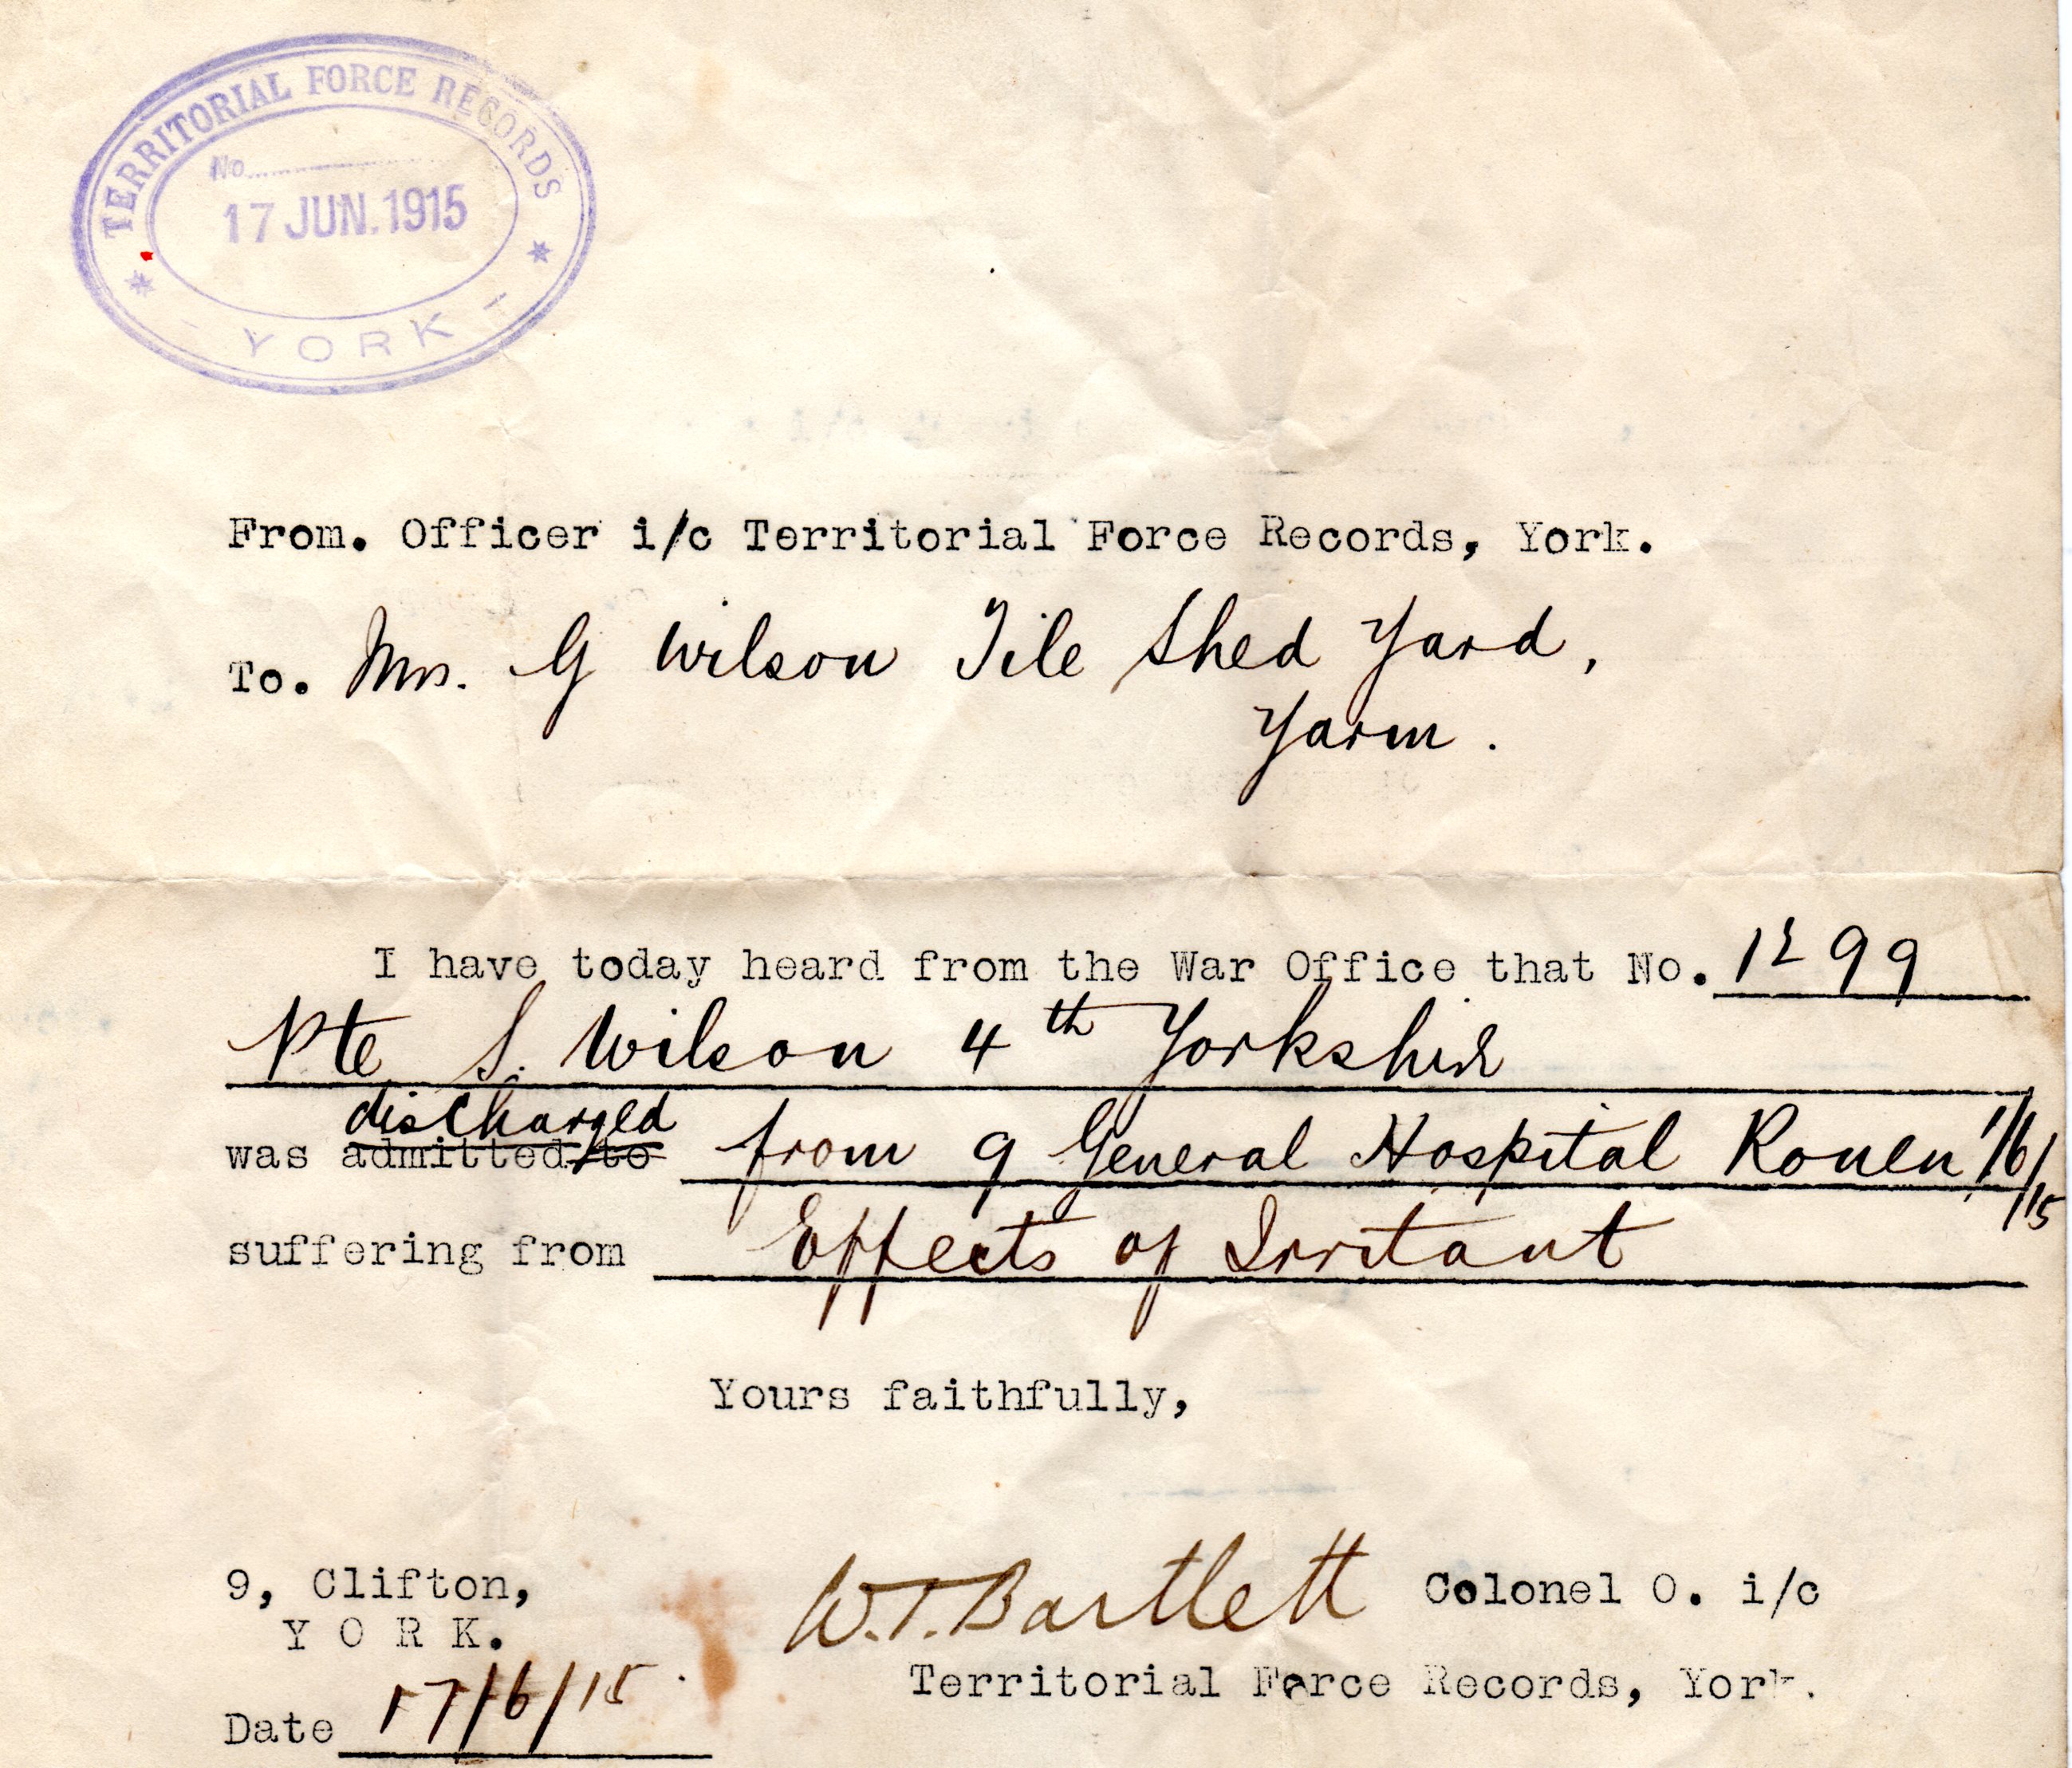 TERRITORIAL FORCE RECORDS
No.
17 JUN. 1915
YORK
From. Officer i/c Territorial Force Records, York.
To. Mrs. G Wilson Tile Shed Yard,
Yarm.
I have today heard from the War Office that No. 1299
Pte S. Wilson 4th Yorkshire
discharged
was admitted/to from 9 General Hospital Rouen 1/6/15
suffering from Effects of Irritant
Yours faithfully,
9, Clifton,
YORK.
W.T. Bartlett Colonel O. i/c
Territorial Force Records, York.
Date 17/6/15